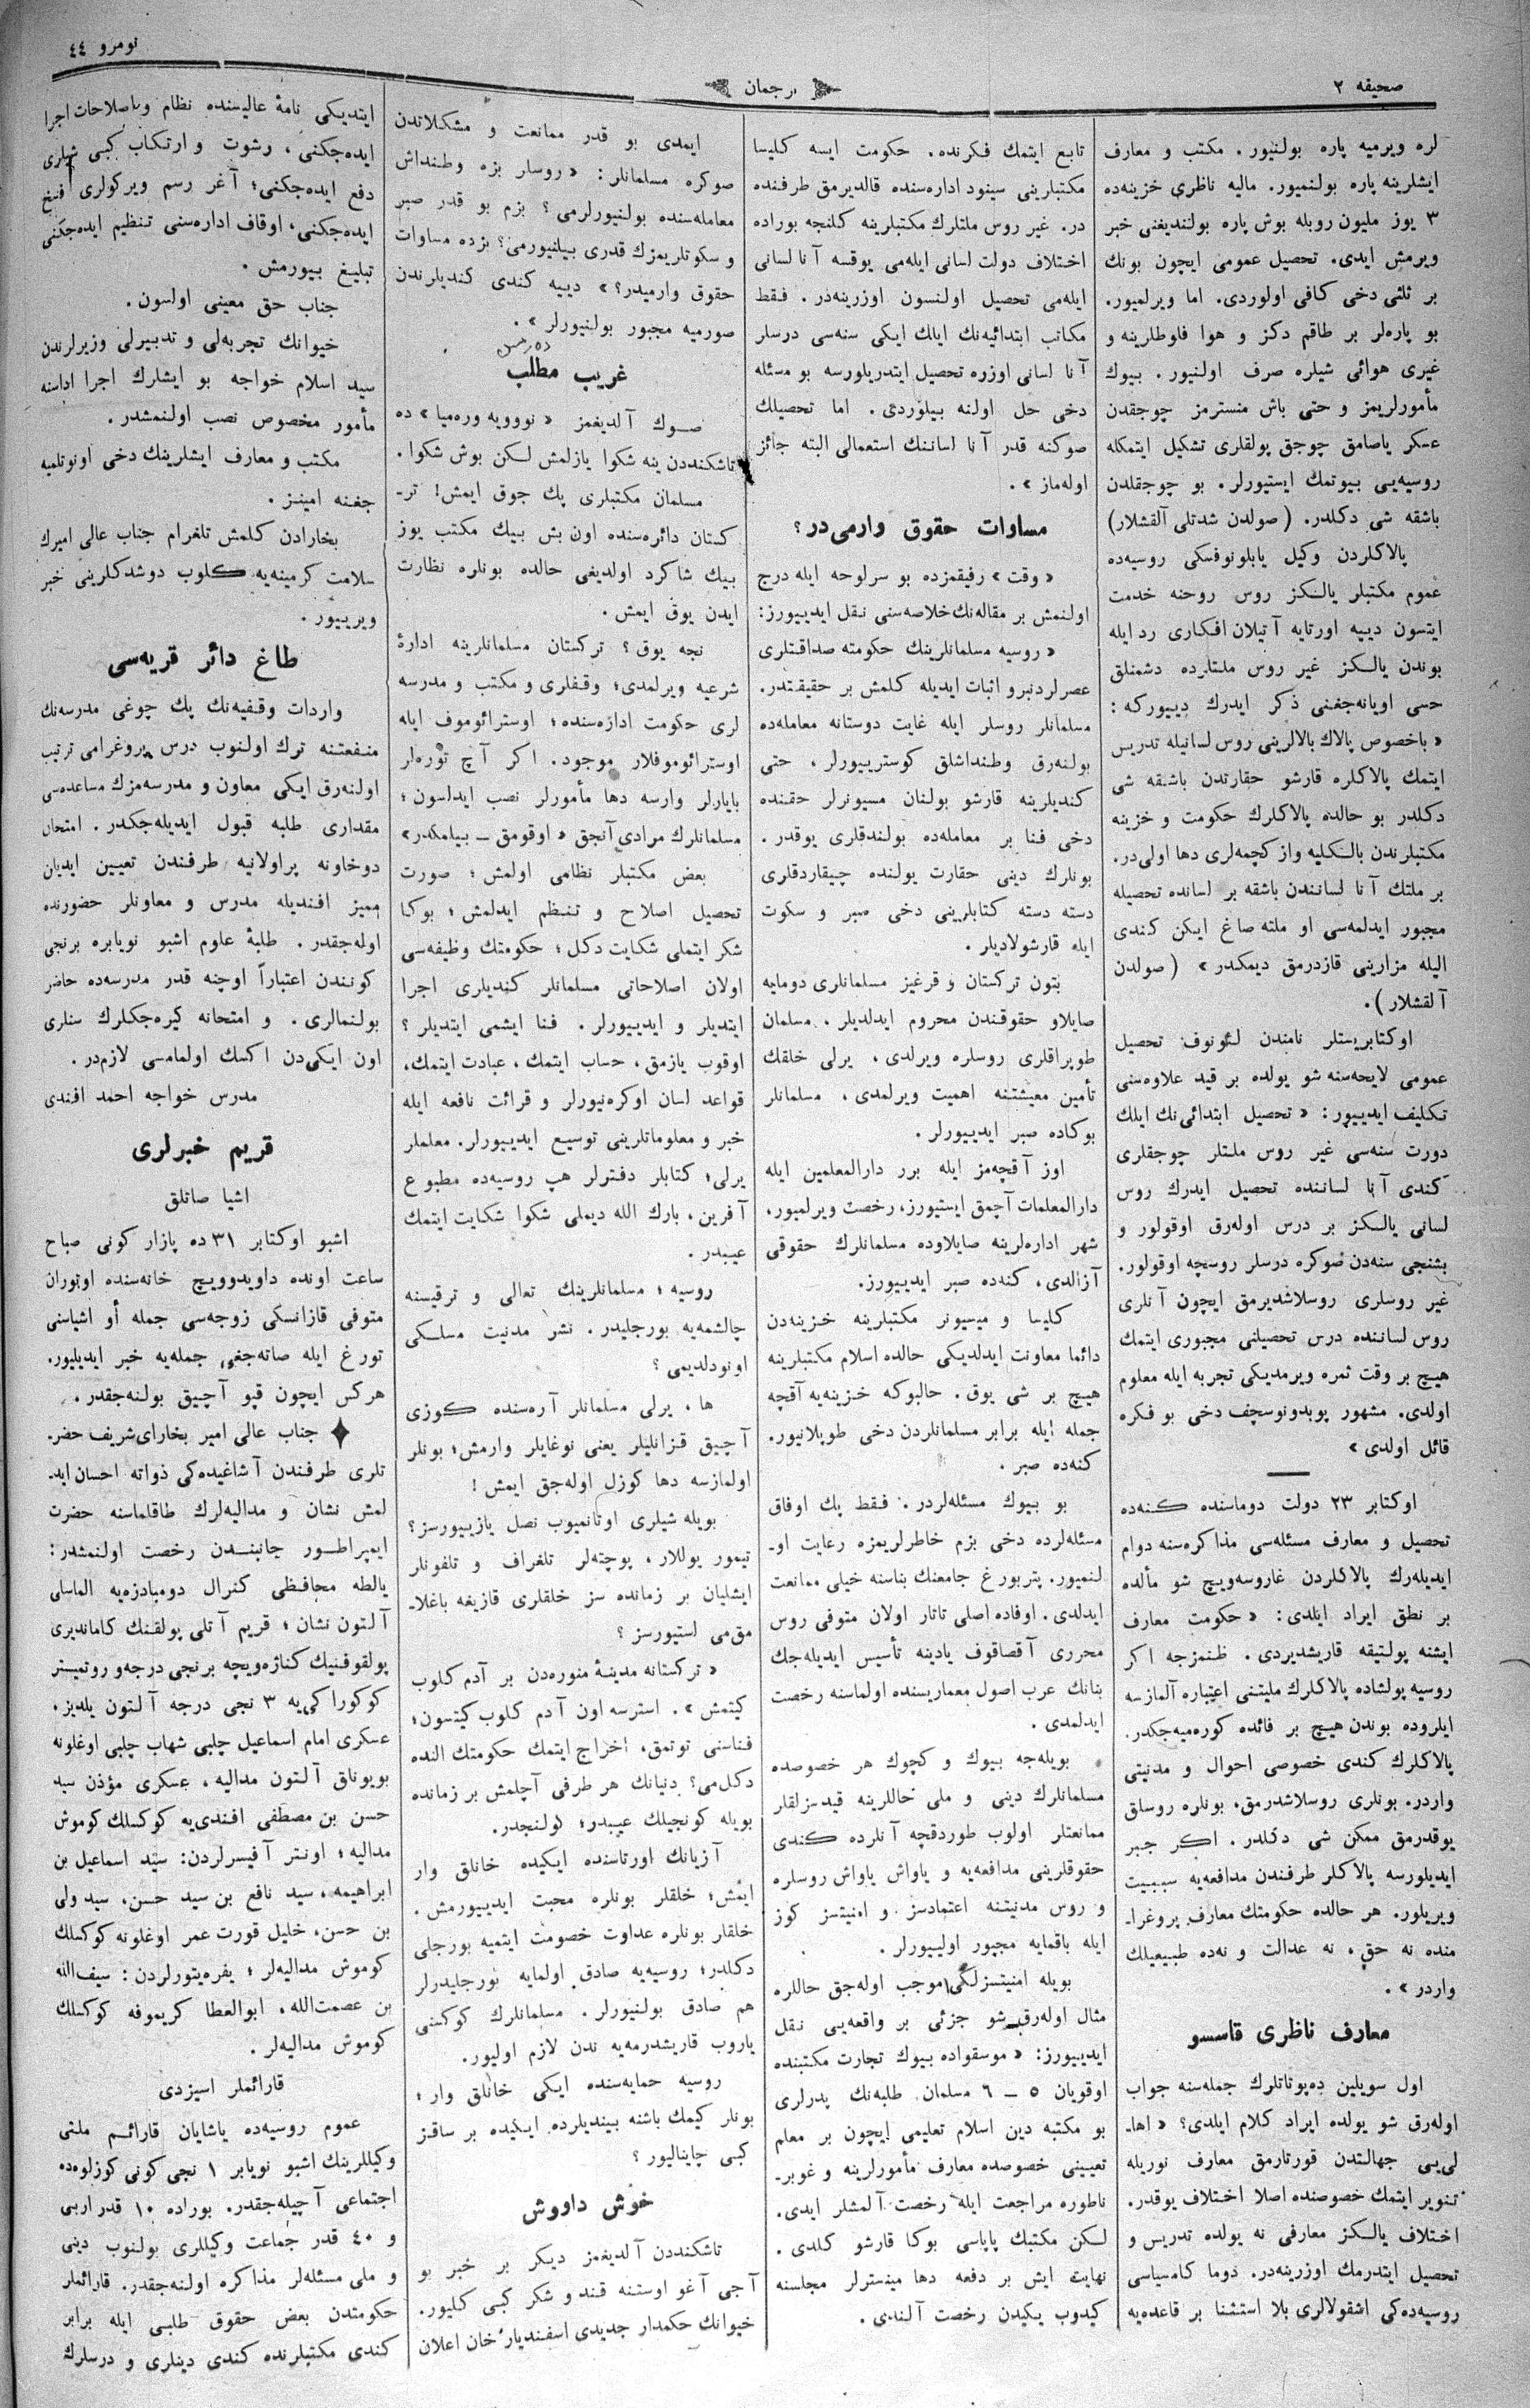 صحیفه ٢
ترجمان
نومرو ٤٤
لره ویرمیه پاره بولنیور. مکتب و معارف
ایشلرینه پاره بولنمیور. مالیه ناظری خزینه‌ده
٣ یوز ملیون روبله بوش پاره بولندیغنی خبر
ویرمش ایدی. تحصیل عمومی ایچون بونك
بر ثلثی دخی کافی اولوردی. اما ویرلمیور.
بو پاره‌لر بر طاقم دکز و هوا فلوطلرینه و
غیری هوائی شیلره صرف اولنیور. بیوك
مأمورلریمز و حتی باش منسترمز چوجقدن
عسکر یاصامق چوجق پولقلری تشکیل ایتمکله
روسیه‌یی بیوتمك ایستیورلر. بو چوجقلدن
باشقه شی دکلدر. (صولدن شدتلی آلقشلار)
پالاکلردن وکیل یابلونوفسکی روسیه‌ده
عموم مکتبلر یالکز روس روحنه خدمت
ایتسون دییه اورتایه آتیلان افکاری رد ایله
بوندن یالکز غیر روس ملتلرده دشمنلق
حسی اویانه‌جغنی ذکر ایدرك دییورکه:
« باخصوص پالاك بالالرینی روس لسانیله تدریس
ایتمك پالاکلره قارشو حقارتدن باشقه شی
دکلدر بو حالده پالاکلرك حکومت و خزینه
مکتبلرندن بالکلیه واز کچمه‌لری دها اولی‌در.
بر ملتك آنا لساندن باشقه بر لسانده تحصیله
مجبور ایدلمه‌سی او ملته صاغ ایکن کندی
الیله مزارینی قازدرمق دیمکدر » (صولدن
آلقشلار).
اوکتابریستلر نامندن لئونوف تحصیل
عمومی لایحه‌سنه شو یولده بر قید علاوه‌سنی
تکلیف ایدییور: « تحصیل ابتدائی‌نك ایلك
دورت سنه‌سی غیر روس ملتلر چوجقلری
کندی آنا لساننده تحصیل ایدرك روس
لسانی یالکز بر درس اوله‌رق اوقولور و
بشنجی سنه‌دن صوکره درسلر روسچه اوقولور.
غیر روسلری روسلاشدیرمق ایچون آنلری
روس لساننده درس تحصیلنی مجبوری ایتمك
هیچ بر وقت ثمره ویرمدیکی تجربه ایله معلوم
اولدی. مشهور پوبدونوسچف دخی بو فکره
قائل اولدی »
اوکتابر ٢٣ دولت دوماسنده کنه‌ده
تحصیل و معارف مسئله‌سی مذاکره‌سنه دوام
ایدیله‌رك پالاکلردن غاروسه‌ویچ شو مألده
بر نطق ایراد ایلدی: « حکومت معارف
ایشنه پولتیقه قاریشدیردی. ظنمزجه اکر
روسیه پولشاده پالاکلرك ملیتنی اعتباره آلمازسه
ایلروده بوندن هیچ بر فائده کوره‌میه‌جکدر.
پالاکلرك کندی خصوصی احوال و مدنیتی
واردر. بونلری روسلاشدرمق، بونلره روسلق
یوقدرمق ممکن شی دکلدر. اکر جبر
ایدیلورسه پالاکلر طرفندن مدافعه‌یه سببیت
ویریلور. هر حالده حکومتك معارف پروغرا-
منده نه حق، نه عدالت و نه‌ده طبیعیلك
واردر ».
معارف ناظری قاسسو
اول سویلین ده‌پوتاتلرك جمله‌سنه جواب
اوله‌رق شو یولده ایراد کلام ایلدی؟ « اها-
لی‌یی جهالتدن قورتارمق معارف نوریله
تنویر ایتمك خصوصنده اصلا اختلاف یوقدر.
اختلاف یالکز معارفی نه یولده تدریس و
تحصیل ایتدرمك اوزرینه‌در. دوما کامسیاسی
روسیه‌ده‌کی اشقولالری بلا استثنا بر قاعده‌یه
تابع ایتمك فکرنده. حکومت ایسه کلیسا
مکتبلرینی سینود اداره‌سنده قالدیرمق طرفنده
در. غیر روس ملتلرك مکتبلرینه کلنجه بوراده
اختلاف دولت لسانی ایله‌می یوقسه آنا لسانی
ایله‌می تحصیل اولنسون اوزرینه‌در. فقط
مکاتب ابتدائیه‌نك ایلك ایکی سنه‌سی درسلر
آنا لسانی اوزره تحصیل ایتدریلورسه بو مسئله
دخی حل اولنه بیلوردی. اما تحصیلك
صوکنه قدر آنا لساننك استعمالی البته جائز
اوله‌ماز ».
مساوات حقوق وارمی‌در؟
« وقت » رفیقمزده بو سرلوحه ایله درج
اولنمش بر مقاله‌نك خلاصه‌سنی نقل ایدییورز:
« روسیه مسلمانلرینك حکومته صداقتلری
عصرلردنبرو اثبات ایدیله کلمش بر حقیقتدر.
مسلمانلر روسلر ایله غایت دوستانه معامله‌ده
بولنه‌رق وطنداشلق کوسترییورلر، حتی
کندیلرینه قارشو بولنان مسیونرلر حقنده
دخی فنا بر معامله‌ده بولندقلری یوقدر.
بونلرك دینی حقارت یولنده چیقاردقلری
دسته دسته کتابلرینی دخی صبر و سکوت
ایله قارشولادیلر.
بتون ترکستان و قرغیز مسلمانلری دومایه
صایلاو حقوقندن محروم ایدلدیلر. مسلمان
طوپراقلری روسلره ویرلدی، یرلی خلقك
تأمین معیشتنه اهمیت ویرلمدی، مسلمانلر
بوکاده صبر ایدییورلر.
اوز آقچه‌مز ایله برر دارالمعلمین ایله
دارالمعلمات آچمق ایستیورز، رخصت ویرلمیور،
شهر اداره‌لرینه صایلاوده مسلمانلرك حقوقی
آزالدی، کنه‌ده صبر ایدییورز.
کلیسا و میسیونر مکتبلرینه خزینه‌دن
دائما معاونت ایدلدیکی حالده اسلام مکتبلرینه
هیچ بر شی یوق. حالبوکه خزینه‌یه آقچه
جمله ایله برابر مسلمانلردن دخی طوپلانیور.
کنه‌ده صبر.
بو بیوك مسئله‌لردر. فقط پك اوفاق
مسئله‌لرده دخی بزم خاطرلریمزه رعایت او-
لنمیور. پتربورغ جامعنك بناسنه خیلی ممانعت
ایدلدی. اوفاده اصلی تاتار اولان متوفی روس
محرری آقصاقوف یادینه تأسیس ایدیله‌جك
بنانك عرب اصول معماریسنده اولماسنه رخصت
ایدلمدی.
بویله‌جه بیوك و کچوك هر خصوصده
مسلمانلرك دینی و ملی حاللرینه قیدسزلقلر
ممانعتلر اولوب طوردقچه آنلرده کندی
حقوقلرینی مدافعه‌یه و یاواش یاواش روسلره
و روس مدنیتنه اعتمادسز و امنیتسز کوز
ایله باقمایه مجبور اولییورلر.
بویله امنیتسزلکی موجب اوله‌جق حاللره
مثال اوله‌رق شو جزئی بر واقعه‌یی نقل
ایدییورز: « موسقواده بیوك تجارت مکتبنده
اوقویان ٥ – ٦ مسلمان طلبه‌نك پدرلری
بو مکتبه دین اسلام تعلیمی ایچون بر معلم
تعیینی خصوصده معارف مأمورلرینه و غوبر-
ناطوره مراجعت ایله رخصت آلمشلر ایدی.
لکن مکتبك پاپاسی بوکا قارشو کلدی.
نهایت ایش بر دفعه دها مینسترلر مجلسنه
کیدوب یکیدن رخصت آلندی.
ایمدی بو قدر ممانعت و مشکلاتدن
صوکره مسلمانلر: « روسلر بزه وطنداش
معامله‌سنده بولنیورلرمی؟ بزم بو قدر صبر
و سکوتلریمزك قدری بیلنیورمی؟ بزده مساوات
حقوق وارمیدر؟ » دییه کندی کندیلرندن
صورمیه مجبور بولنیورلر ».
غریب مطلب
صوك آلدیغمز « نوویه وره‌میا » ده
تاشکنددن ینه شکوا یازلمش لکن بوش شکوا.
مسلمان مکتبلری پك چوق ایمش! تر-
کستان دائره‌سنده اون بش بیك مکتب یوز
بیك شاکرد اولدیغی حالده بونلره نظارت
ایدن یوق ایمش.
نجه یوق؟ ترکستان مسلمانلرینه ادارهٔ
شرعیه ویرلمدی؛ وقفلری و مکتب و مدرسه
لری حکومت اداره‌سنده؛ اوسترائوموف ایله
اوسترائوموفلار موجود. اکر آچ توره‌لر
بایارلر وارسه دها مأمورلر نصب ایدلسون؛
مسلمانلرك مرادی آنجق « اوقومق – بیلمکدر»
بعض مکتبلر نظامی اولمش؛ صورت
تحصیل اصلاح و تنظم ایدلمش؛ بوکا
شکر ایتملی شکایت دکل؛ حکومتك وظیفه‌سی
اولان اصلاحاتی مسلمانلر کندیلری اجرا
ایتدیلر و ایدییورلر. فنا ایشمی ایتدیلر؟
اوقوب یازمق، حساب ایتمك، عبادت ایتمك،
قواعد لسان اوکره‌نیورلر و قرائت نافعه ایله
خبر و معلوماتلرینی توسیع ایدییورلر. معلملر
یرلی؛ کتابلر دفترلر هپ روسیه‌ده مطبوع
آفرین، بارك الله دیملی شکوا شکایت ایتمك
عیبدر.
روسیه؛ مسلمانلرینك تعالی و ترقیسنه
چالشمه‌یه بورجلیدر. نشر مدنیت مسلکی
اونودلدیمی؟
ها، یرلی مسلمانلر آره‌سنده کوزی
آچیق قزانلیلر یعنی نوغایلر وارمش؛ بونلر
اولمازسه دها کوزل اوله‌جق ایمش!
بویله شیلری اوتانمیوب نصل یازییورسز؟
تیمور یوللار، پوچته‌لر تلغراف و تلفونلر
ایشلیان بر زمانده سز خلقلری قازیغه باغلا-
مق‌می استیورسز؟
« ترکستانه مدینهٔ منوره‌دن بر آدم کلوب
کیتمش ». استرسه اون آدم کلوب کیتسون؛
فناسنی توتمق، اخراج ایتمك حکومتك النده
دکل‌می؟ دنیانك هر طرفی آچلمش بر زمانده
بویله کونجیلك عیبدر؛ کولنجدر.
آزیانك اورتاسنده ایکیده خانلق وار
ایمش؛ خلقلر بونلره محبت ایدییورمش.
خلقلر بونلره عداوت خصومت ایتمیه بورجلی
دکلدر؛ روسیه‌یه صادق اولمایه بورجلیدرلر
هم صادق بولنیورلر. مسلمانلرك کوکسنی
یاروب قاریشدرمه‌یه ندن لازم اولیور.
روسیه حمایه‌سنده ایکی خانلق وار؛
بونلر کیمك باشنه بیندیلرده ایکیده بر ساقز
کبی چاینالیور؟
خوش داووش
تاشکنددن آلدیغمز دیکر بر خبر بو
آجی آغو اوستنه قند و شکر کبی کلیور.
خیوانك حکمدار جدیدی اسفندیار خان اعلان
ایتدیکی نامهٔ عالیسنده نظام و اصلاحات اجرا
ایده‌جکنی، رشوت و ارتکاب کبی شیلری
دفع ایده‌جکنی؛ آغر رسم ویرکولری فسخ
ایده‌جکنی، اوقاف اداره‌سنی تنظیم ایده‌جکنی
تبلیغ بیورمش.
جناب حق معینی اولسون.
خیوانك تجربه‌لی و تدبیرلی وزیرلرندن
سید اسلام خواجه بو ایشلرك اجرا اداسنه
مأمور مخصوص نصب اولنمشدر.
مکتب و معارف ایشلرینك دخی اونوتلمیه
جغنه امینز.
بخارادن کلمش تلغرام جناب عالی امیرك
سلامت کرمینه‌یه کلوب دوشدکلرینی خبر
ویرییور.
طاغ دائر قریه‌سی
واردات وقفیه‌نك پك چوغی مدرسه‌نك
منفعتنه ترك اولنوب درس پروغرامی ترتیب
اولنه‌رق ایکی معاون و مدرسه‌مزك مساعده‌سی
مقداری طلبه قبول ایدیله‌جکدر. امتحان
دوخاونه پراولانیه طرفندن تعیین ایدیان
ممیز افندیله مدرس و معاونلر حضورنده
اوله‌جقدر. طلبهٔ علوم اشبو نویابره برنجی
کوندن اعتباراً اوچنه قدر مدرسه‌ده حاضر
بولنمالری. و امتحانه کیره‌جکلرك سنلری
اون ایکی‌دن اکسك اولمامسی لازمدر.
مدرس خواجه احمد افندی
قریم خبرلری
اشیا صاتلق
اشبو اوکتابر ٣١ ده پازار کونی صباح
ساعت اونده داویدوویچ خانه‌سنده اوتوران
متوفی قازانسکی زوجه‌سی جمله أو اشیاسنی
تورغ ایله صاته‌جغی جمله‌یه خبر ایدیلیور.
هرکس ایچون قپو آچیق بولنه‌جقدر.
جناب عالی امیر بخارای شریف حضر-
تلری طرفندن آشاغیده‌کی ذواته احسان اید-
لمش نشان و مدالیه‌لرك طاقلماسنه حضرت
ایمپراطور جانبندن رخصت اولنمشدر:
یالطه محافظی کنرال دومبادزه‌یه الماسلی
آلتون نشان؛ قریم آتلی پولقنك کاماندیری
پولقوفنیك کناژه‌ویچه برنجی درجه و روتمیستر
کوکوراکی‌یه ٣ نجی درجه آلتون یلدیز.
عسکری امام اسماعیل چلبی شهاب چلبی اوغلونه
بویوناق آلتون مدالیه، عسکری مؤذن سید
حسن بن مصطفی افندی‌یه کوکسلك کوموش
مدالیه؛ اونتر آفیسرلردن: سید اسماعیل بن
ابراهیمه، سید نافع بن سید حسن، سید ولی
بن حسن، خلیل قورت عمر اوغلونه کوکسلك
کوموش مدالیه‌لر؛ یفره‌یتورلردن: سیف‌الله
بن عصمت‌الله، ابوالعطا کریموفه کوکسلك
کوموش مدالیه‌لر.
قارائملر اسیزدی
عموم روسیه‌ده یاشایان قارائم ملتی
وکیللرینك اشبو نویابر ١ نجی کونی کوزلوه‌ده
اجتماعی آچیله‌جقدر. بوراده ١٠ قدر اربی
و ٤٠ قدر جماعت وکیللری بولنوب دینی
و ملی مسئله‌لر مذاکره اولنه‌جقدر. قارائملر
حکومتدن بعض حقوق طلبی ایله برابر
کندی مکتبلرنده کندی دینلری و درسلرك